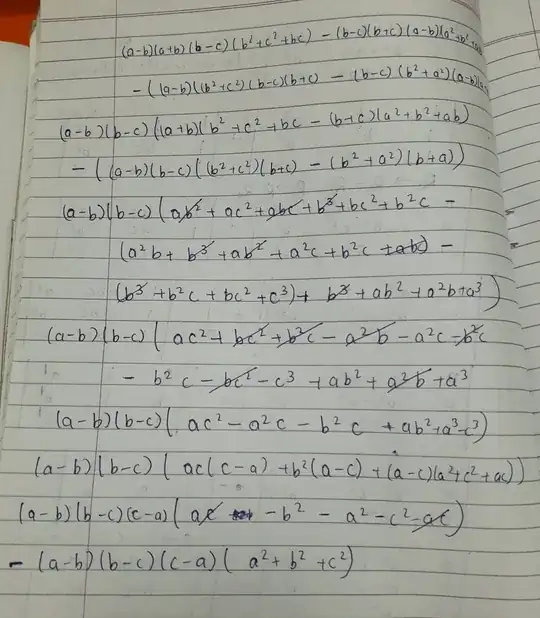 (a-b)(a+b)(b-c)(b²+c²+bc) - (b-c)(b+c)(a-b)(a²+b²+ab
-((a-b)(b²+c²)(b-c)(b+c) - (b-c)(b²+a²)(a-b)(a+
(a-b)(b-c)((a+b)(b²+c²+bc - (b+c)(a²+b²+ab)
-((a-b)(b-c)((b²+c²)(b+c) - (b²+a²)(b+a))
(a-b)(b-c)(ab²+ac²+abc+b³+bc²+b²c -
(a²b+b³+ab²+a²c+b²c+abc) -
(b³+b²c+bc²+c³)+ b³+ab²+a²b+a³)
(a-b)(b-c)(ac²+bc²+b²c-a²b-a²c-b²c
- b²c-bc²-c³+ab²+a²b+a³
(a-b)(b-c)(ac²-a²c-b²c+ab²+a³-c³)
(a-b)(b-c)(ac(c-a)+b²(a-c)+(a-c)(a²+c²+ac))
(a-b)(b-c)(c-a)(ac -b²-a²-c²-ac)
-(a-b)(b-c)(c-a)(a²+b²+c²)